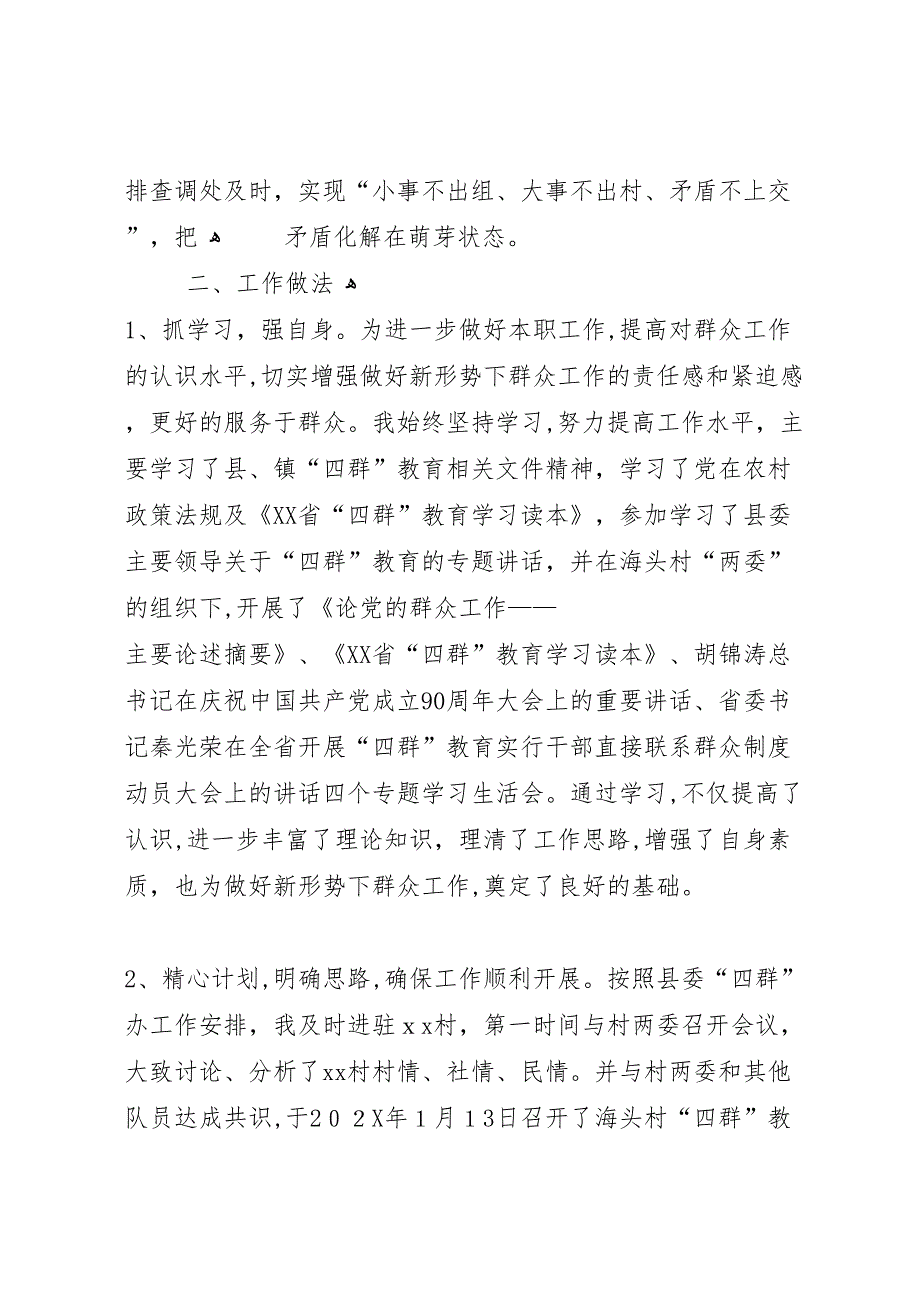 排查调处及时，实现“小事不出组、大事不出村、矛盾不上交
”，把 ﻬ 矛盾化解在萌芽状态。
二、工作做法 ﻬ
1、抓学习，强自身。为进一步做好本职工作,提高对群众工作
的认识水平,切实增强做好新形势下群众工作的责任感和紧迫感
，更好的服务于群众。我始终坚持学习,努力提高工作水平，主
要学习了县、镇“四群”教育相关文件精神，学习了党在农村
政策法规及《XX省“四群”教育学习读本》，参加学习了县委
主要领导关于“四群”教育的专题讲话，并在海头村“两委”
的组织下,开展了《论党的群众工作——
主要论述摘要》、《XX省“四群”教育学习读本》、胡锦涛总
书记在庆祝中国共产党成立90周年大会上的重要讲话、省委书
记秦光荣在全省开展“四群”教育实行干部直接联系群众制度
动员大会上的讲话四个专题学习生活会。通过学习,不仅提高了
认识,进一步丰富了理论知识，理清了工作思路,增强了自身素
质，也为做好新形势下群众工作,奠定了良好的基础。
2、精心计划,明确思路,确保工作顺利开展。按照县委“四群”
办工作安排，我及时进驻ｘx村，第一时间与村两委召开会议，
大致讨论、分析了xx村村情、社情、民情。并与村两委和其他
队员达成共识,于２０２X年１月１3日召开了海头村“四群”教